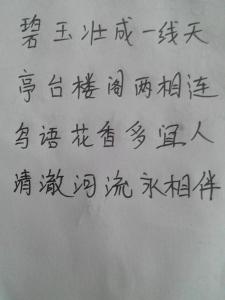 碧玉壮成一线天
亭台楼阁两相连
鸟语花香多宜人
清澈河流永相伴